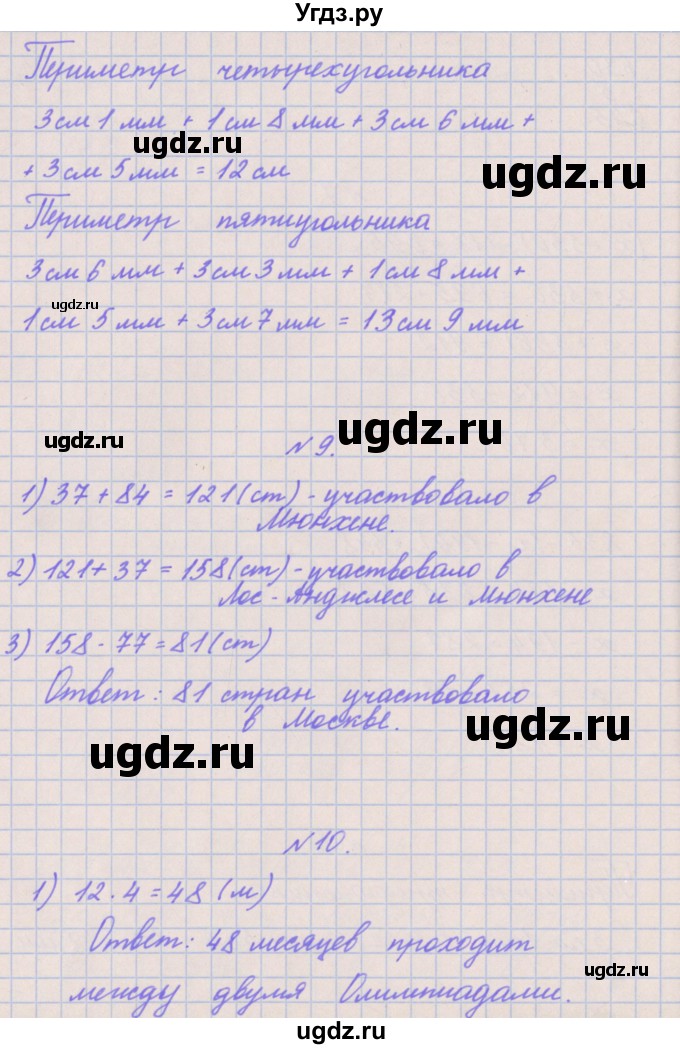 Угдз.ру
Периметр четырехугольника
3см 1 мм + 1см 8 мм + 3см 6 мм +
ugdz.ru
ugdz.ru
+ 3см 5мм = 12см
Периметр пятиугольника
3см 6 мм + 3см 3мм + 1см 8мм +
ugdz.ru
1см 5мм + 3см 7мм = 13см 9мм
ugdz.ru
ugdz.ru
№9.
1) 37 + 84 = 121(ст) - участвовало в
Мюнхене.
2) 121 + 37 = 158(ст) - участвовало в
Лос - Анджлесе и Мюнхене
3) 158 - 77 = 81(ст)
Ответ: 81 стран участвовало
в Москве.
ugdz.ru
ugdz.ru
№10.
1) 12 · 4 = 48 (м)
Ответ: 48 месяцев проходит
ugdz.ru
между двумя Олимпиадами.
ugdz.ru